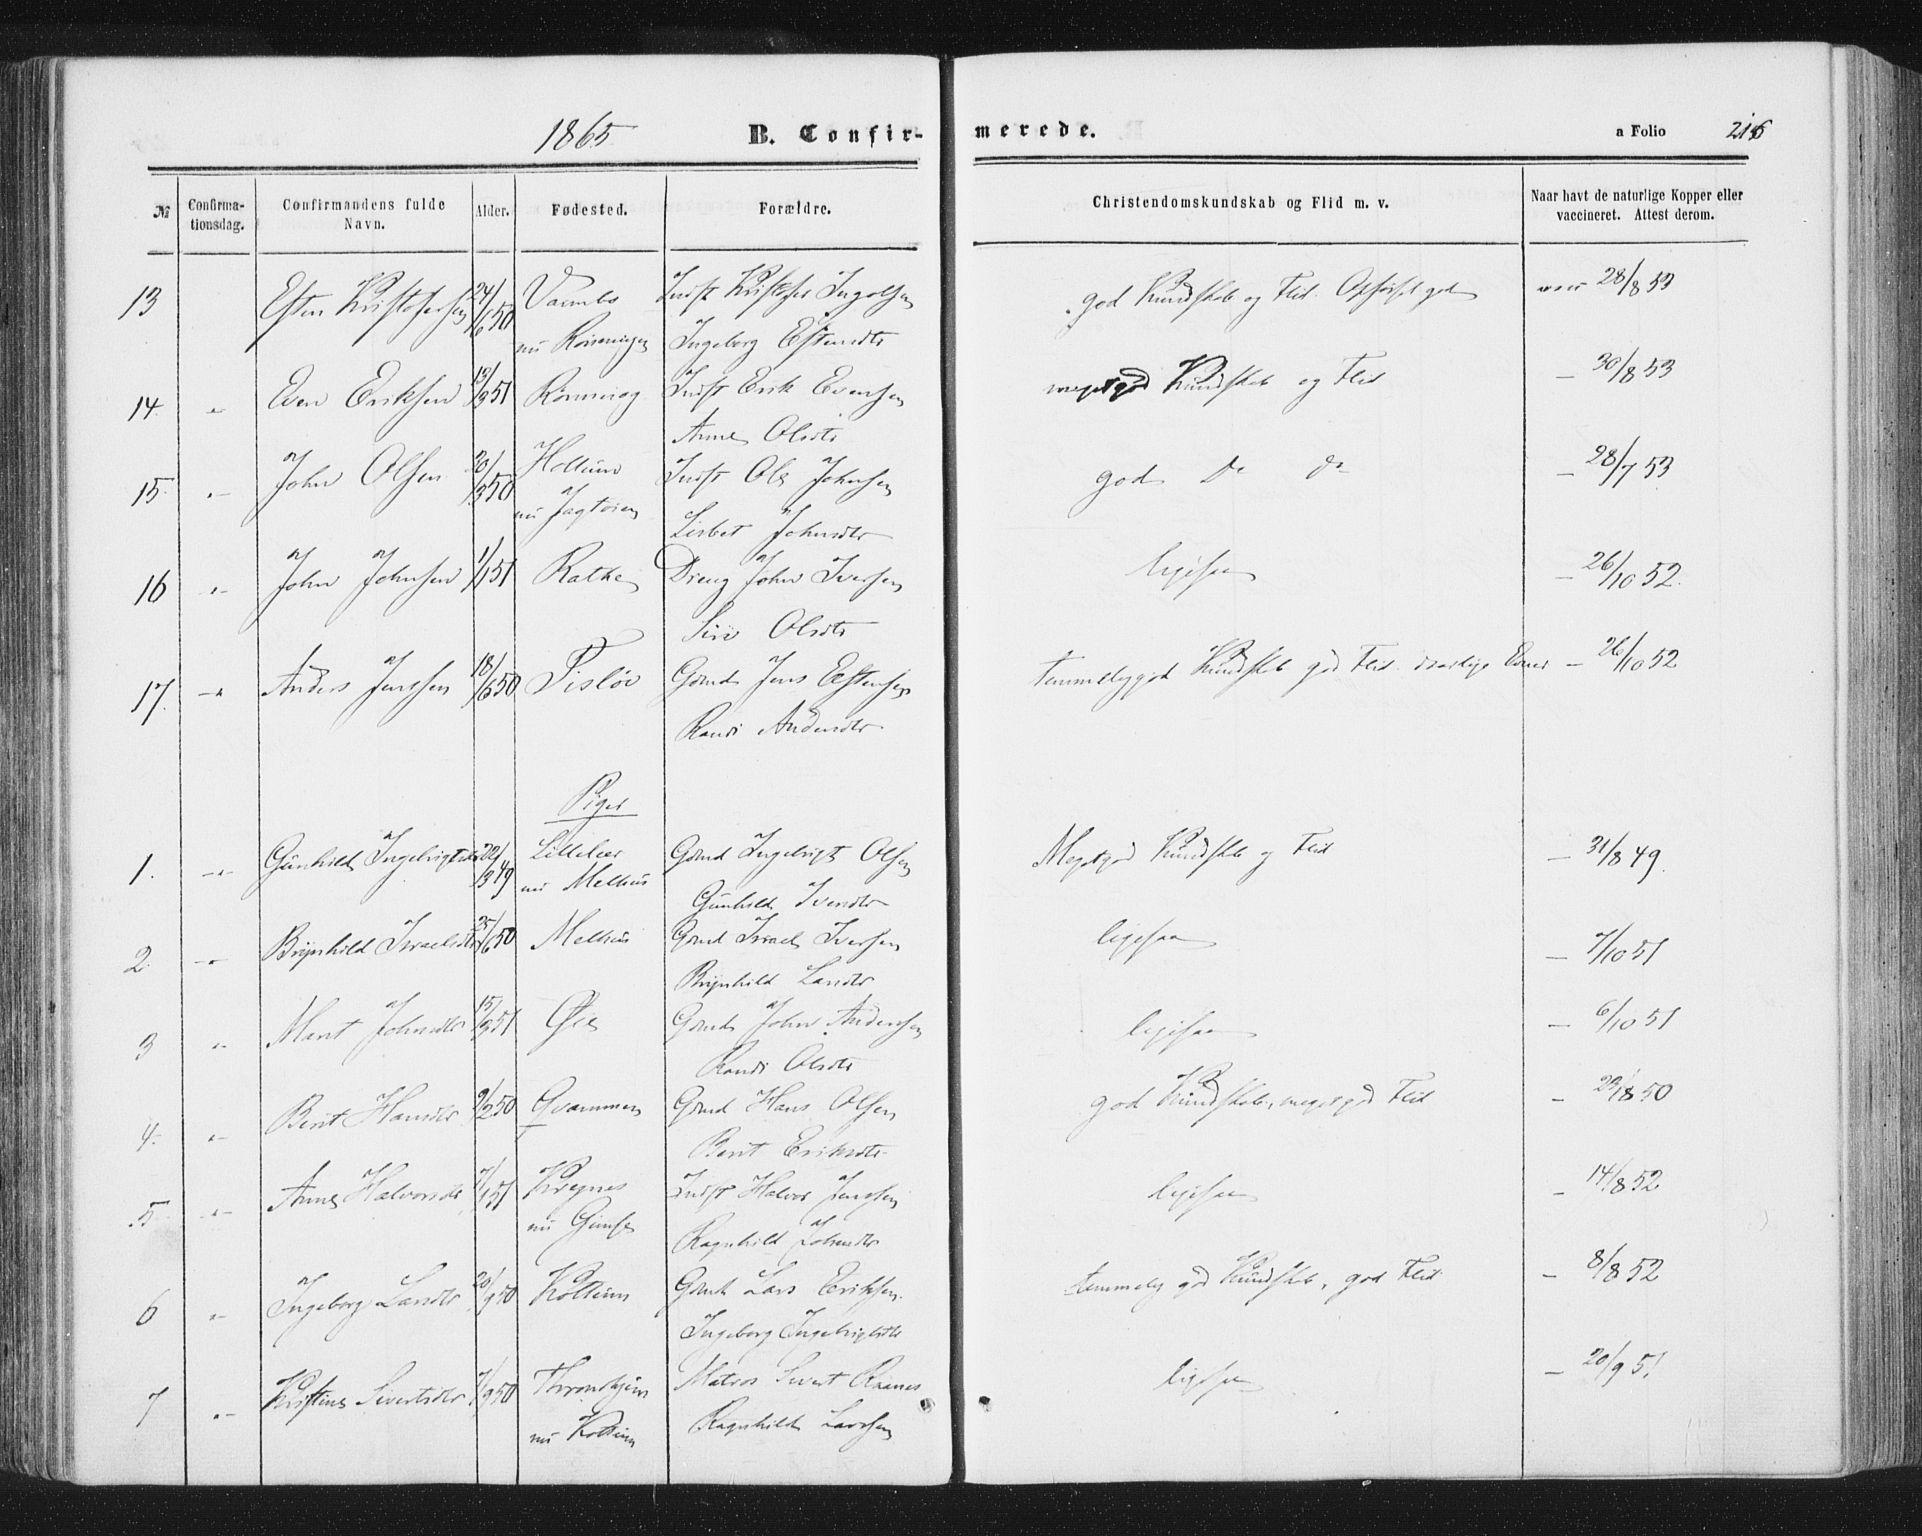 1865 B. Confirmerede. a Folio 216
№ Confirmationsdag. Confirmandens fulde Navn. Alder. Fødested. Forældre. Christendomskundskab og Flid m. v. Naar havt de naturlige Kopper eller vaccineret. Attest derom.
13 Esten Kristofersen 24/6 50 Indst Kristofer Ingolfsen god Kundskab og Flid. 28/8 53
nu Ingeborg Estensdtr
14. " Even Eriksen 13/3 51 Indst Erik Evensen meget god Kundskab og Flid – 30/8 53
Anne Olsdtr
15. " John Olsen 20/3 50 Hollum Indst Ole Johnsen god do do – 28/7 53
nu Jagtøien Lisbet Johnsdtr
16 " John Johnsen 1/1 51 Dreng John Iversen ligesaa – 26/10 52.
Siri Olsdtr
17. " Anders Jenssen 18/6 50 Gmd Jens Estensen temmelig god Kundskab god Flid – 26/10 52
Randi Andersdtr
Piger
1. " Gunhild Ingebrigtsdtr 22/3 49 Gmd Ingebrigt Olsen Meget god Kundskab og Flid – 31/8 49.
nu Melhus Gunhild Iversdtr
2. " Brynhild Israelsdtr 25/6 50 Melhus Gmd Israel Iversen ligesaa – 7/10 51
Brynhild Larsdtr
3 " Marit Johnsdtr 15/3 51 Øie Gmd John Andersen ligesaa – 6/10 51
Randi Olsdtr
4. " Berit Hansdtr 9/2 50 Qvammen Gmd Hans Olsen god Kundskab, meget god Flid – 23/8 50
Berit Eriksdtr
5 " Anne Halvorsdtr 7/1 51 Kregnes Indst Halvor Jenssen ligesaa – 14/8 52
nu Gimse Ragnhild Johnsdtr
6 " Ingeborg Larsdtr 20/9 50 Gmd Lars Eriksen temmelig god Kundskab, god Flid – 8/8 52
Ingeborg Ingebrigtsdtr
7 " Kristine Sivertsdtr 7/9 50 Throndhjem Matros Sivert ligesaa – 20/9 51
nu Ragnhild Larssen